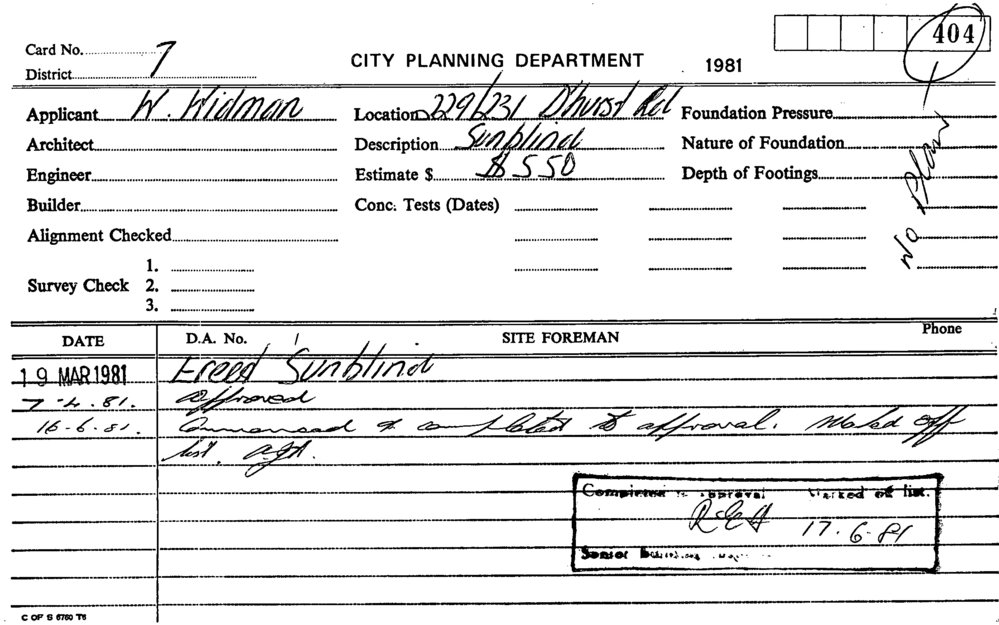 404
Card No. 7
District
CITY PLANNING DEPARTMENT 1981
Applicant W. Widman Location 229/231 D'hurst Rd Foundation Pressure
Architect Description Sunblind Nature of Foundation
Engineer Estimate $ $550 Depth of Footings
Builder Conc. Tests (Dates)
No Plan
Alignment Checked
1.
Survey Check 2.
3.
DATE D.A. No. SITE FOREMAN Phone
19 MAR 1981 Erect Sunblind
7-4.81. approved
16-6.81. Commenced & completed to approval. Marked off
list.
Completed to approval Marked off list.
17.6.81
Senior Building
C OF S 6760 T6